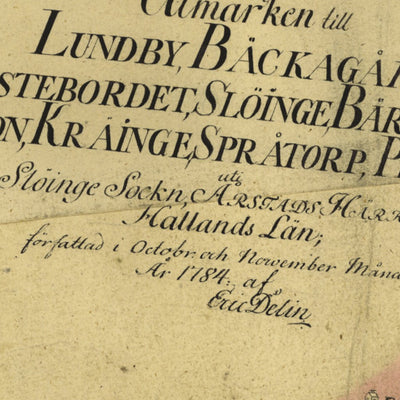 Utmarken till
LUNDBY, BÄCKAGÅR
STEBORDET, SLÖINGE, BÅR
ON, KRÄINGE, SPRÅTORP, P
uti
Slöinge Sockn, ÅRSTADS HÄR
Hallands Län;
författad i Octobr. och November Måna
År 1784. af
Eric Delin